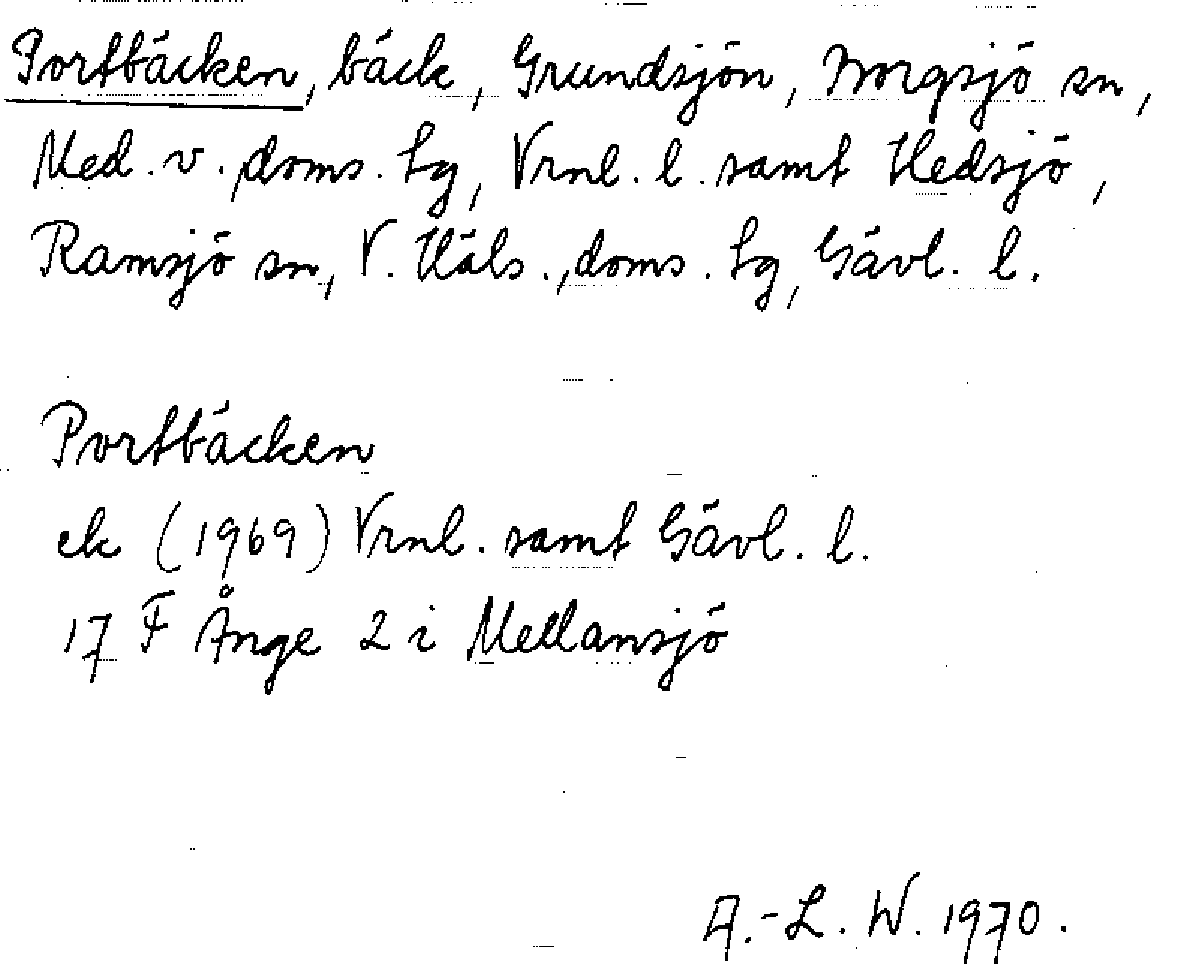 Portbäcken, bäck, Grundsjön, Borgsjö sn,
Med. v. doms. lg, Vrnl. l. samt Hedsjö,
Ramsjö sn, V. Häls., doms. lg, Gävl. l.
Portbäcken
ek (1969) Vrnl. samt Gävl. l.
17 F Ånge 2 i Mellansjö
A.-L. W. 1970.